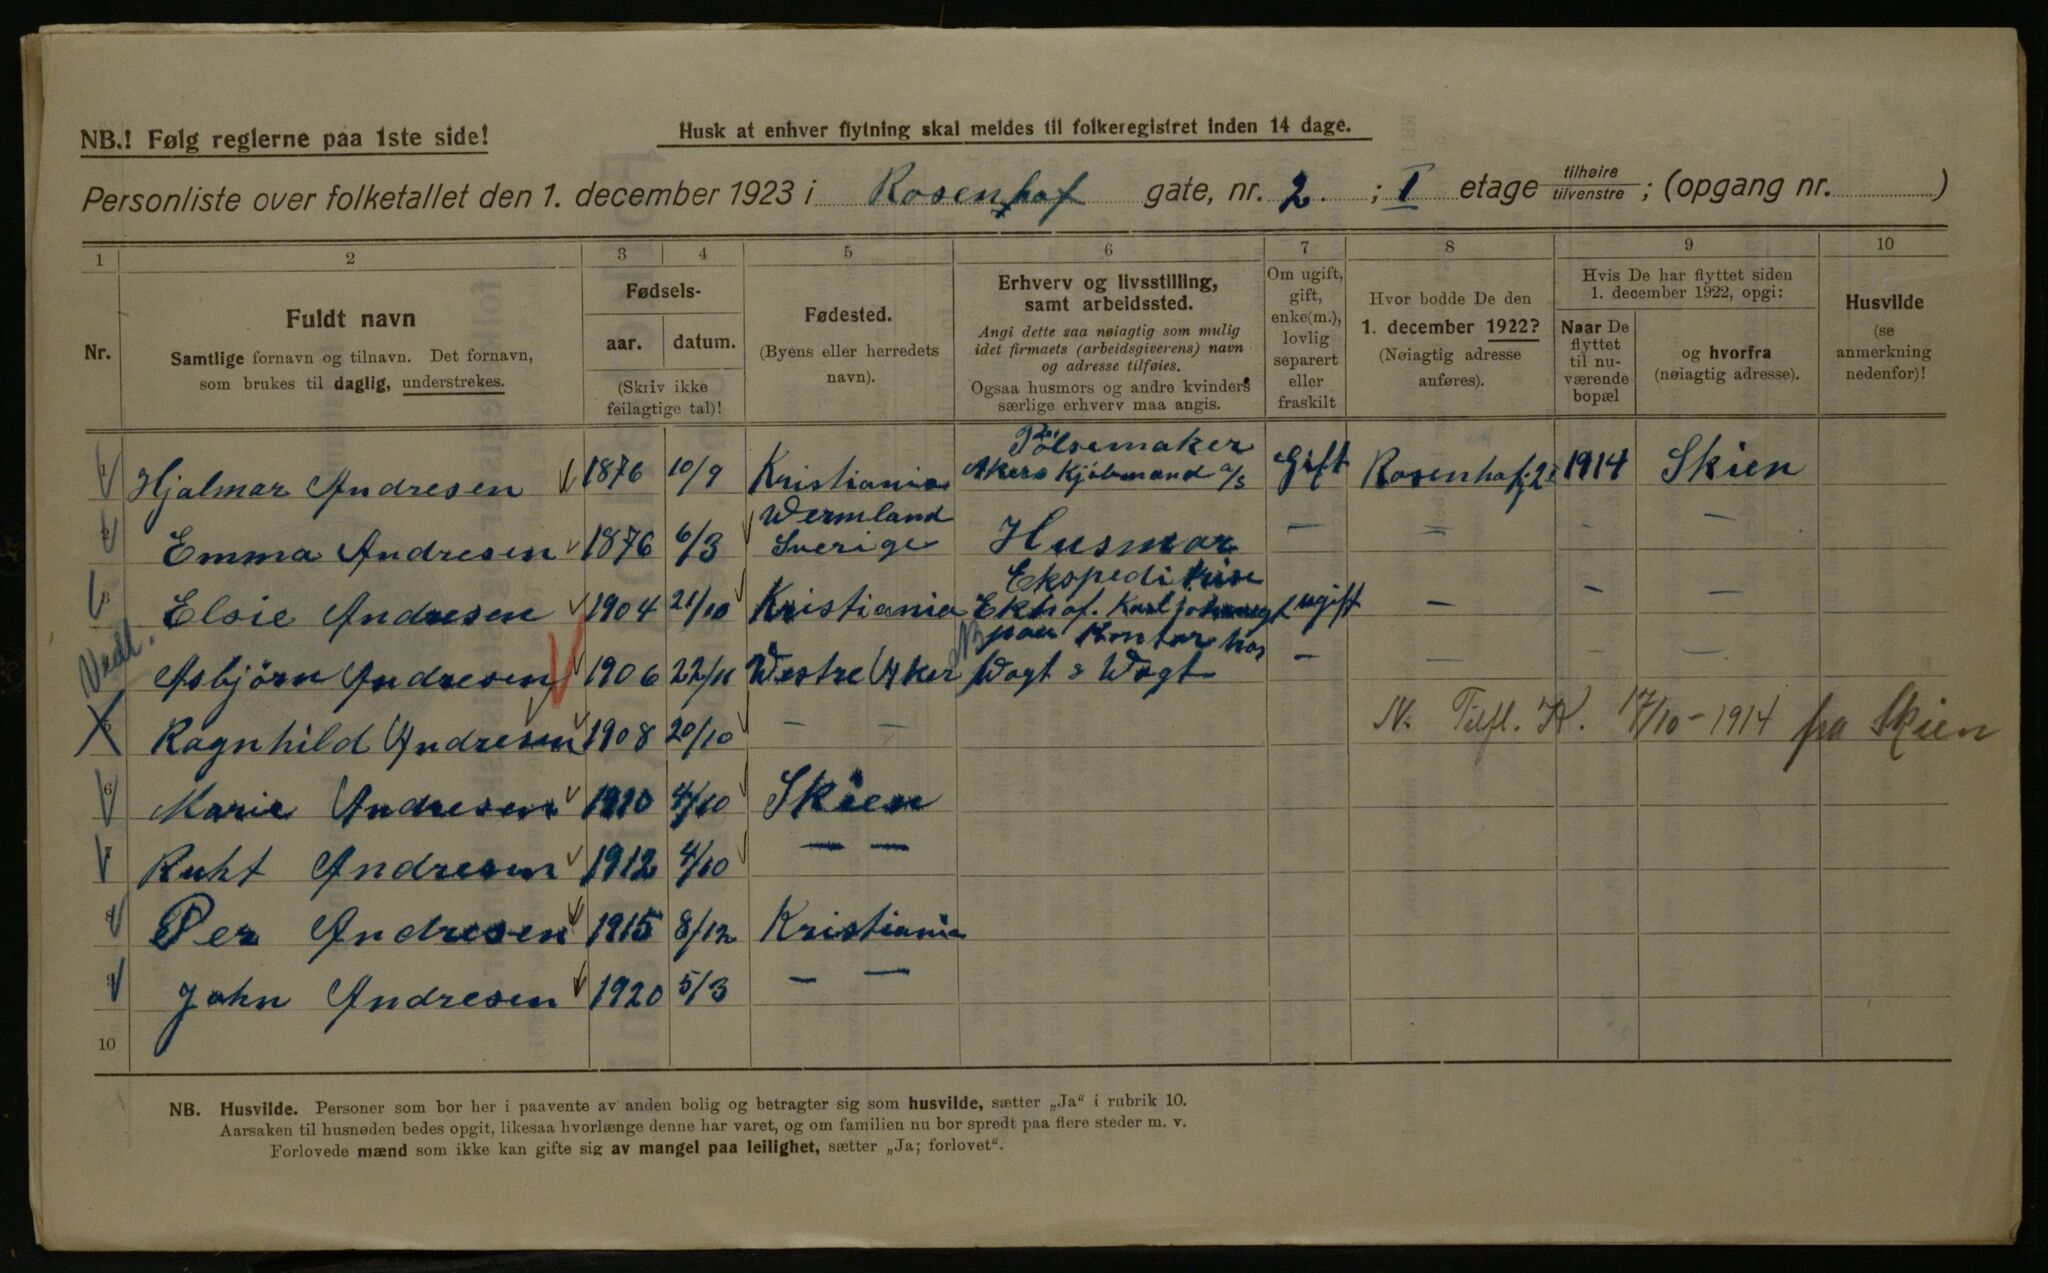 NB.! Følg reglerne paa 1ste side!
Husk at enhver flytning skal meldes til folkeregistret inden 14 dage.
Personliste over folketallet den 1. december 1923 i Rosenhof gate, nr. 2. ; I etage tilhøire tilvenstre ; (opgang nr. )
1 2 3 4 5 6 7 8 9 10
Nr.
Fuldt navn
Samtlige fornavn og tilnavn. Det fornavn,
som brukes til daglig, understrekes.
Fødsels-
aar. datum.
(Skriv ikke
feilagtige tal)!
Fødested.
(Byens eller herredets
navn).
Erhverv og livsstilling,
samt arbeidssted.
Angi dette saa nøiagtig som mulig
idet firmaets (arbeidsgiverens) navn
og adresse tilføies.
Ogsaa husmors og andre kvinders
særlige erhverv maa angis.
Om ugift,
gift,
enke(m.),
lovlig
separert
eller
fraskilt
Hvor bodde De den
1. december 1922?
(Nøiagtig adresse
anføres).
Hvis De har flyttet siden
1. december 1922, opgi:
Naar De
flyttet
til nu-
værende
bopæl
og hvorfra
(nøiagtig adresse).
Husvilde
(se
anmerkning
nedenfor)!
Pølsemaker
1 Hjalmar Andresen 1876 10/9 Kristiania Akers Kjøbmænd a/s Gift Rosenhofg 2 I 1914 Skien
Wermland
2 Emma Andresen 1876 6/3 Sverige Husmor — — — —
Ekspeditrise
3 Elsie Andresen 1904 21/10 Kristiania Ekhof. Karl johansgt ugift — — —
paa Kontor hos
Asbjørn Andresen 1906 22/11 Westre Aker Vogt & Vogt — — — —
5 Ragnhild Andresen 1908 20/10 — — N. Tilfl. K. 17/10-1914 fra Skien
6 Marie Andresen 1910 4/10 Skien
7 Ruht Andresen 1912 4/10 — —
8 Per Andresen 1915 8/12 Kristiania
9 John Andresen 1920 5/3 — —
10
NB. Husvilde. Personer som bor her i paavente av anden bolig og betragter sig som husvilde, sætter „Ja“ i rubrik 10.
Aarsaken til husnøden bedes opgit, likesaa hvorlænge denne har varet, og om familien nu bor spredt paa flere steder m. v.
Forlovede mænd som ikke kan gifte sig av mangel paa leilighet, sætter „Ja; forlovet“.